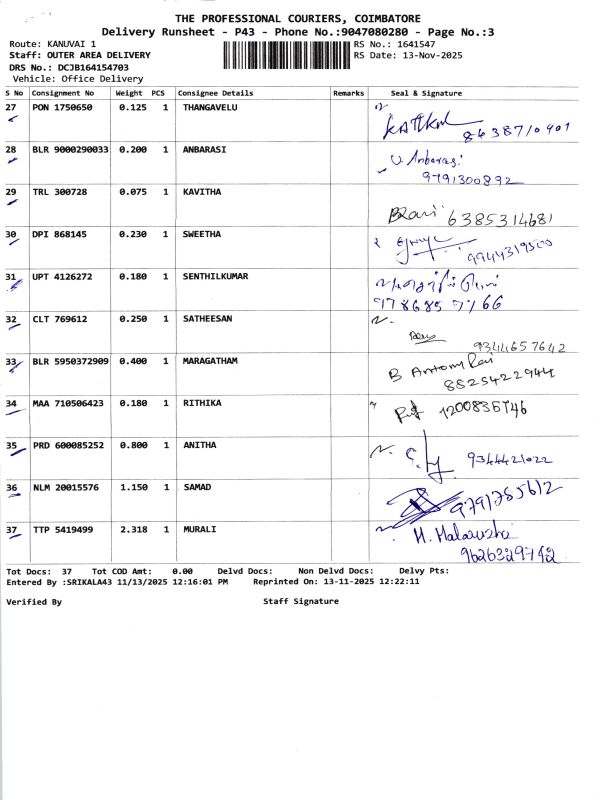 THE PROFESSIONAL COURIERS, COIMBATORE
Delivery Runsheet - P43 - Phone No.:9047080280 - Page No.:3
Route: KANUVAI 1
Staff: OUTER AREA DELIVERY
DRS No.: DCJB164154703
Vehicle: Office Delivery
RS No.: 1641547
RS Date: 13-Nov-2025
S No Consignment No Weight PCS Consignee Details Remarks Seal & Signature
27 PON 1750650 0.125 1 THANGAVELU
28 BLR 9000290033 0.200 1 ANBARASI U. Anbarasi
9791300892
29 TRL 300728 0.075 1 KAVITHA
6385314681
30 DPI 868145 0.230 1 SWEETHA
9944319500
31 UPT 4126272 0.180 1 SENTHILKUMAR
32 CLT 769612 0.250 1 SATHEESAN
9344657642
33 BLR 5950372909 0.400 1 MARAGATHAM B Antony Raj
8825422944
34 MAA 710506423 0.180 1 RITHIKA
35 PRD 600085252 0.800 1 ANITHA 9344421022
36 NLM 20015576 1.150 1 SAMAD 9791785612
37 TTP 5419499 2.318 1 MURALI
9626329742
Tot Docs: 37 Tot COD Amt: 0.00 Delvd Docs: Non Delvd Docs: Delvy Pts:
Entered By :SRIKALA43 11/13/2025 12:16:01 PM Reprinted On: 13-11-2025 12:22:11
Verified By Staff Signature